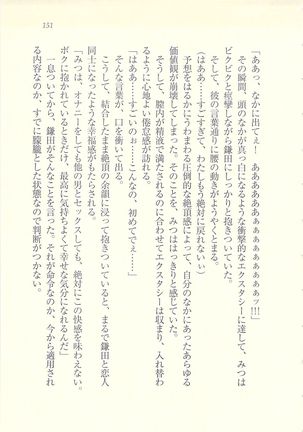 151
「ああっ、なかに出てぇ！　ああああああぁぁぁぁぁぁぁぁッ!!!」
その瞬間、頭のなかが真っ白になるような衝撃的なエクスタシーに達して、みつは
ビクビクと痙攣しながら鎌田にしっかりと抱きついていた。
そして、彼の言葉通りに腰の動きがようやくとまる。
（はああ……すごすぎて、わたしもう絶対に戻れないぃ）
予想をはるかにうわまわる圧倒的な絶頂感によって、自分のなかにあったあらゆる
価値観が崩壊してしまった。そのことを、みつははっきりと感じていた。
そうして、膣内が精液で満たされるのに合わせてエクスタシーは収まり、入れ替わ
るように心地よい倦怠感が訪れる。
「はああ……すごいのぉ……こんなの、初めてでぇ……」
そんな言葉が、口を衝いて出る。
こうして、結合したまま絶頂の余韻に浸って抱きついていると、まるで鎌田と恋人
同士になったような幸福感がもたらされる。
「みつは、オナニーをしても他の男とセックスしても、絶対にこの快感を味わえない。
ボクに抱かれているときだけ、最高に気持ちよくて幸せな気分になれるんだ」
一息ついてから、鎌田がそんなことを言った。それが命令なのか、今から適用され
る内容なのか、すでに朦朧とした状態なので判断がつかない。